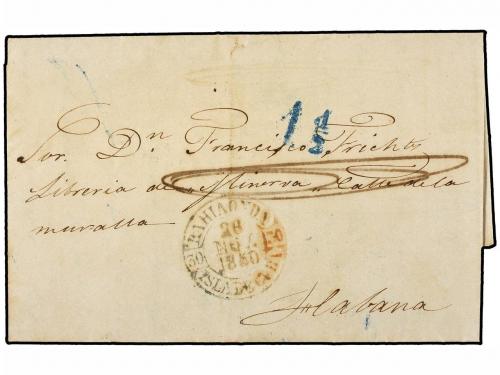 1½
Sor. Dn. Francisco Fricht
Libreria de Minerva Calle de la
muralla
BAHIAONDA
26
NOV
1850
ISLA DE CUBA
Habana